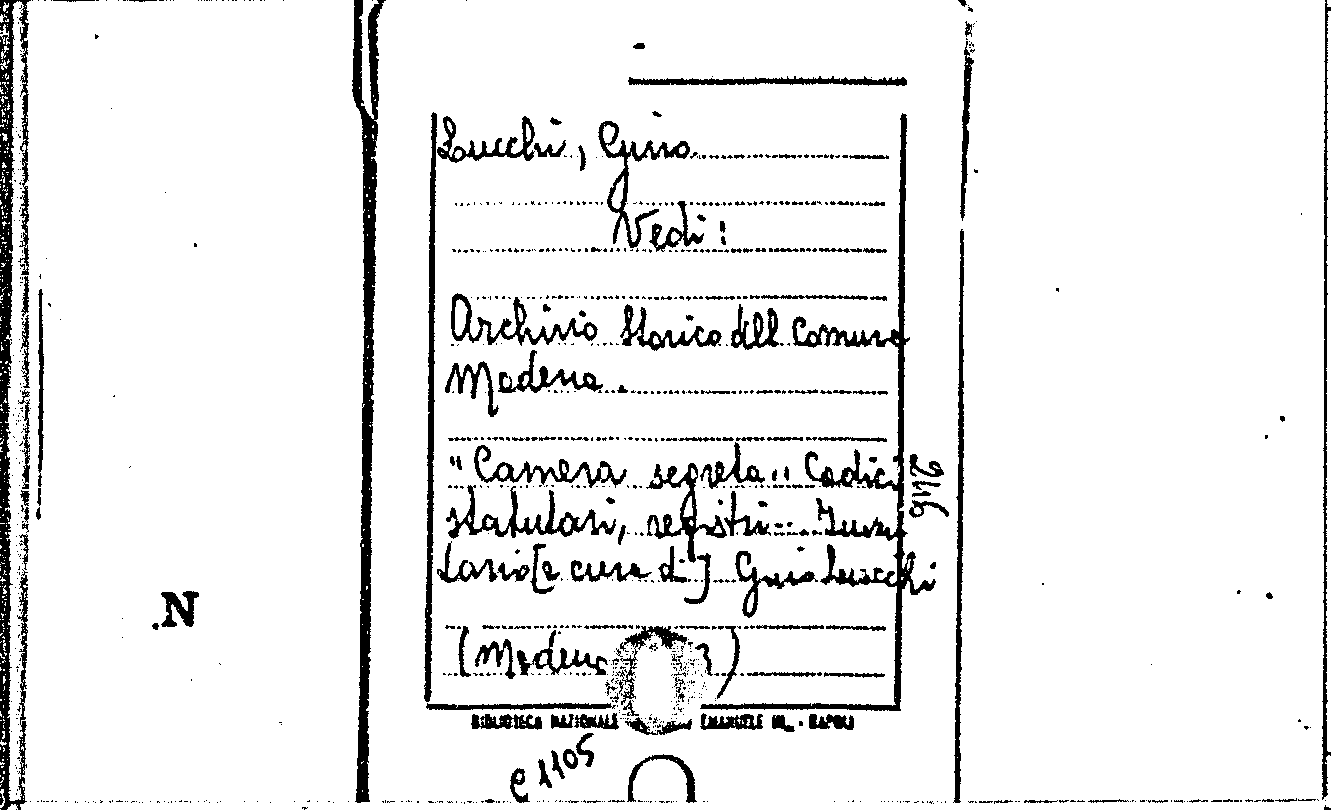 Lucchi, Gino
Vedi:
Archivio Storico dell Comune
Modena.
"Camera segreta" Codici
statutari, registri-- Inven
tario [a cura di] Gino Lucchi
(Modena 3)
BIBLIOTECA NAZIONALE EMANUELE III - NAPOLI
C 1105
246
.N